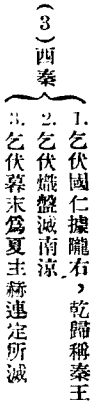 (3)西秦
1.乞伏國仁據隴右，乾歸稱秦王
2.乞伏熾盤滅南涼
3.乞伏幕末爲夏主赫連定所滅